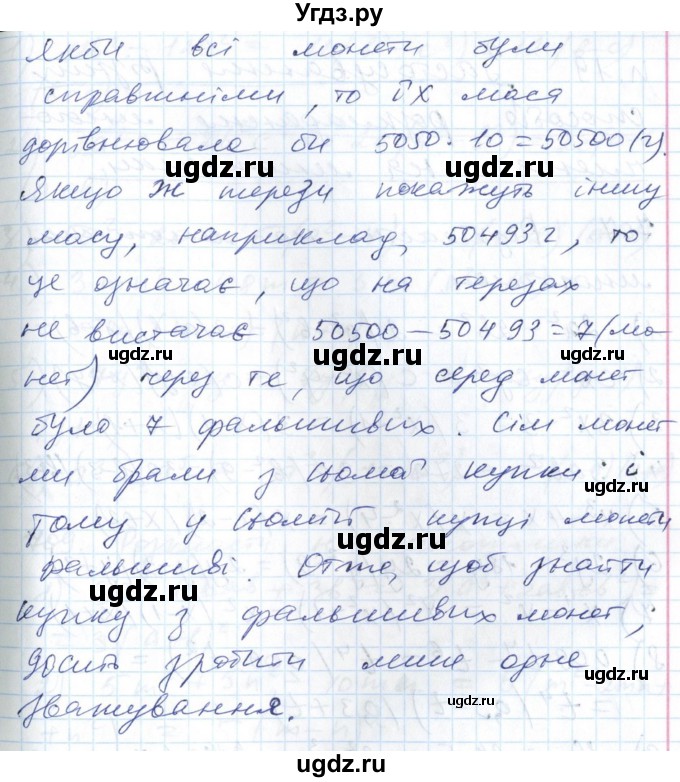 Угдз.ру
Якби всі монети були
справжніми, то їх маса
дорівнювала би 5050 · 10 = 50500 (г).
Якщо ж терези покажуть іншу
масу, наприклад, 50493 г, то
це означає, що на терезах
не вистачає 50500 - 50493 = 7 (мо-
нет) через те, що серед монет
було 7 фальшивих. Сім монет
ми брали з сьомої купки і
тому у сьомій купці монети
фальшиві. Отже, щоб знайти
купку з фальшивих монет,
досить зробити лише одне
зважування.
ugdz.ru
ugdz.ru
ugdz.ru
ugdz.ru
ugdz.ru
ugdz.ru
ugdz.ru
ugdz.ru
ugdz.ru
ugdz.ru
ugdz.ru
ugdz.ru
ugdz.ru
ugdz.ru